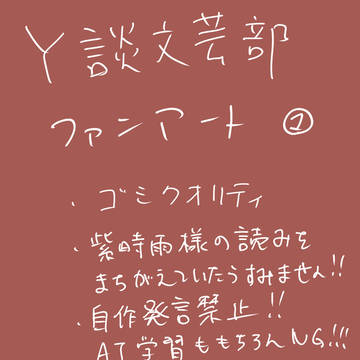 Y談文芸部
ファンアート①
・ゴミクオリティ
・紫時雨様の読みを
まちがえていたらすみません!!
・自作発言禁止!!
AI学習ももちろんNG!!!